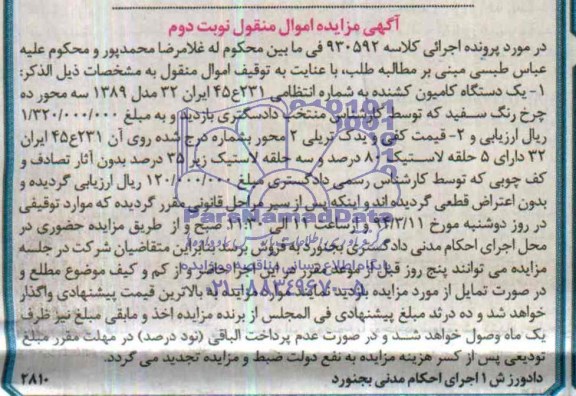 آگهی مزایده اموال منقول نوبت دوم
در مورد پرونده اجرائی کلاسه ۹۳۰۵۹۲ فی ما بین محکوم له غلامرضا محمدپور و محکوم علیه
عباس طبسی مبنی بر مطالبه طلب، با عنایت به توقیف اموال منقول به مشخصات ذیل الذکر:
۱- یک دستگاه کامیون کشنده به شماره انتظامی ۲۳۱ع۴۵ ایران ۳۲ مدل ۱۳۸۹ سه محور ده
چرخ رنگ سفید که توسط کارشناس منتخب دادگستری بازدید و به مبلغ ۱/۳۲۰/۰۰۰/۰۰۰
ریال ارزیابی و ۲- قیمت کفی و یدک تریلی ۲ محور بشماره درج شده روی آن ۲۳۱ع۴۵ ایران
۳۲ دارای ۵ حلقه لاستیک ۸۰ درصد و سه حلقه لاستیک زیر ۳۵ درصد بدون آثار تصادف و
کف چوبی که توسط کارشناس رسمی دادگستری مبلغ ۱۲۰/۰۰۰/۰۰۰ ریال ارزیابی گردیده و
بدون اعتراض قطعی گردیده اند و اینکه پس از سیر مراحل قانونی مقرر گردیده که موارد توقیفی
در روز دوشنبه مورخ ۹۴/۳/۱۱ از ساعت ۱۱ الی ۱۱:۳۰ صبح و از طریق مزایده حضوری در
محل اجرای احکام مدنی دادگستری بجنورد به فروش برسد بنابراین متقاضیان شرکت در جلسه
مزایده می توانند پنج روز قبل از موعد مقرر در این اجرا حاضر و از کم و کیف موضوع مطلع و
در صورت تمایل از مورد مزایده بازدید نمایند موارد مزایده به بالاترین قیمت پیشنهادی واگذار
خواهد شد و ده درصد مبلغ پیشنهادی فی المجلس از برنده مزایده اخذ و مابقی مبلغ نیز ظرف
یک ماه وصول خواهد شد و در صورت عدم پرداخت الباقی (نود درصد) در مهلت مقرر مبلغ
تودیعی پس از کسر هزینه مزایده به نفع دولت ضبط و مزایده تجدید می گردد.
دادورز ش ۱ اجرای احکام مدنی بجنورد ۲۸۱۰
ParsNamadData
پایگاه اطلاع رسانی مناقصه و مزایده
۰۲۱-۸۸۳۴۹۶۷۰-۵